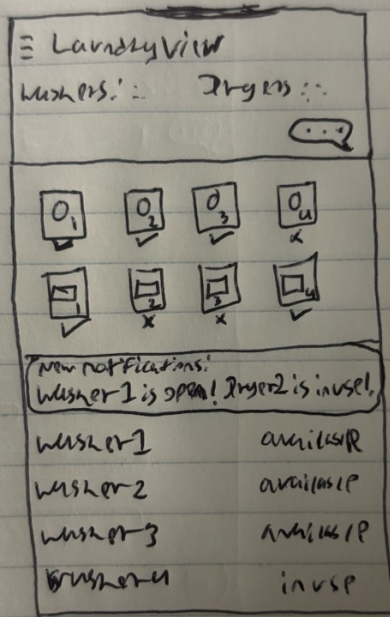 LaundryView
Washers: Dryers:
1 2 3 4
1 2 2 4
New notifications:
Washer 1 is open! Dryer 2 is in use!
Washer 1 available
Washer 2 available
Washer 3 available
Washer 4 in use